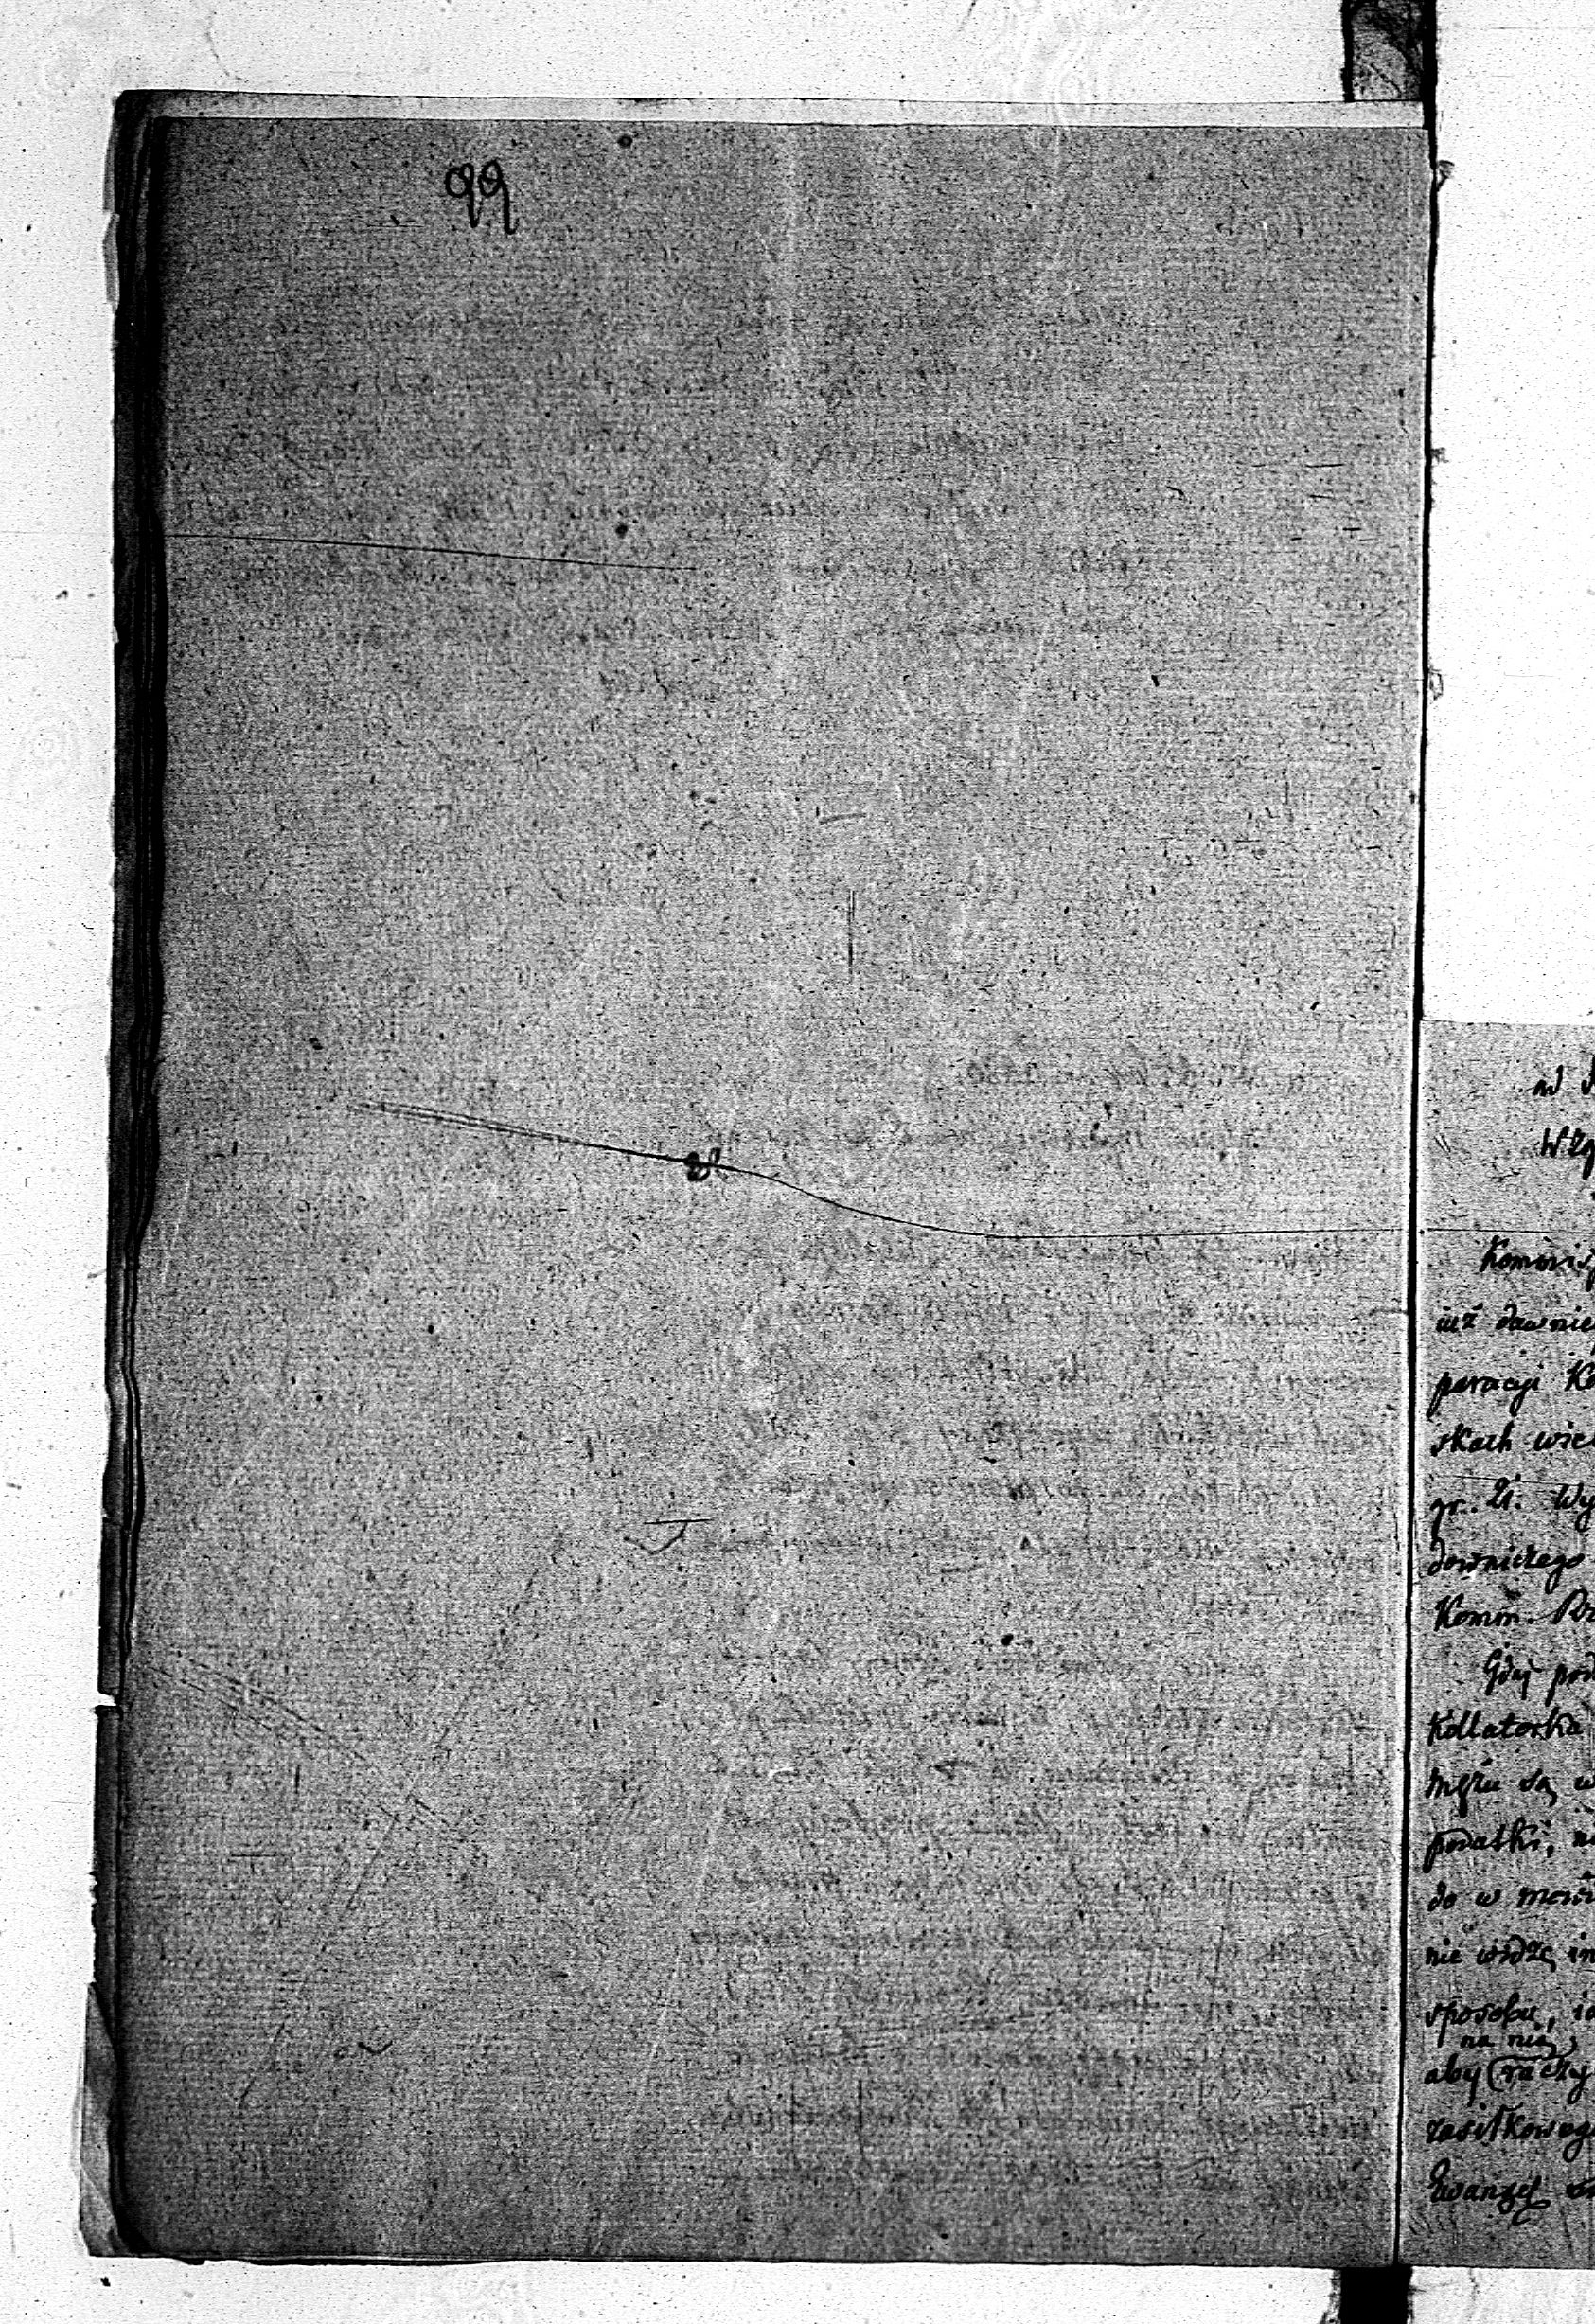 99
w
Kommis
iuż dawnie
paracyi K
skach wie
gr. 21. Wy
downiczego
Komm. Rz
Gdy pod
Kollatorka
mężu są w
podatki, n
do w
nie widzę in
sposobu, i
na nią
aby raczy
zasiłkoweg
Ewangel